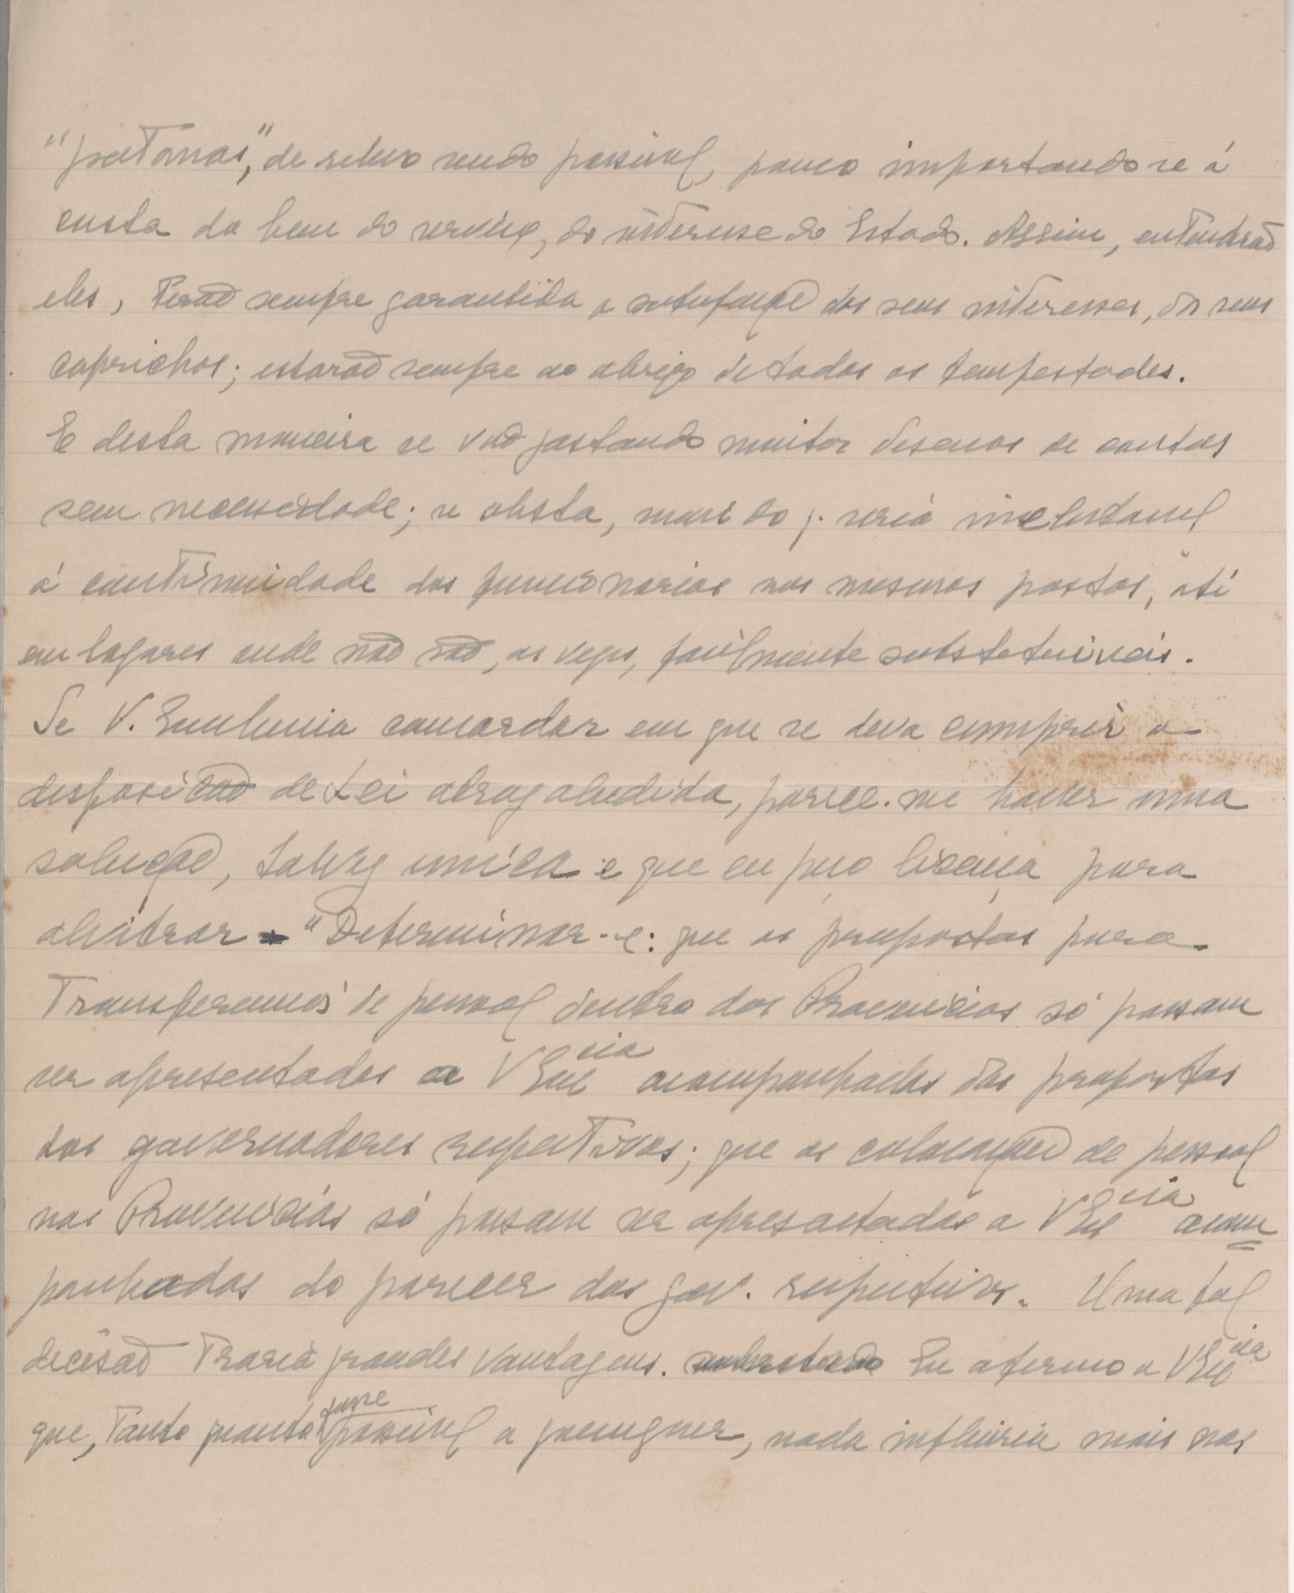 de relevo sendo possivel, pouco importando se á
custa do bem do serviço, do interesse do Estado. Assim, entenderão
eles, terão sempre garantida a satisfação dos seus interesses, dos seus
caprichos; estarão sempre ao abrigo de todas as tempestades.
E desta maneira se vão gastando muitos de contos
sem necessidade; se obsta, mais do q. seria
á continuidade dos funcionarios nos mesmos postos, até
em logares onde não são, as vezes, facilmente substituiveis.
Se V. Excelencia concordar em que se deva cumprir a
disposição de Lei atraz aludida, parece-me haver uma
solução, talvez unica e que eu peço licença para
alvitrar - "Determinar-se: que as propostas para
transferencias de pessoal dentro das Provincias só possam
ser apresentadas a VExcia acompanhadas das propostas
dos governadores respectivos; que as colocações de pessoal
nas Provincias só possam ser apresentadas a VExcia acom
panhadas do parecer dos gov. respectivos. Uma tal
decisão traria grandes vantagens. Eu afirmo a VExcia
que, tanto quanto fosse possivel a nada influiria mais nas